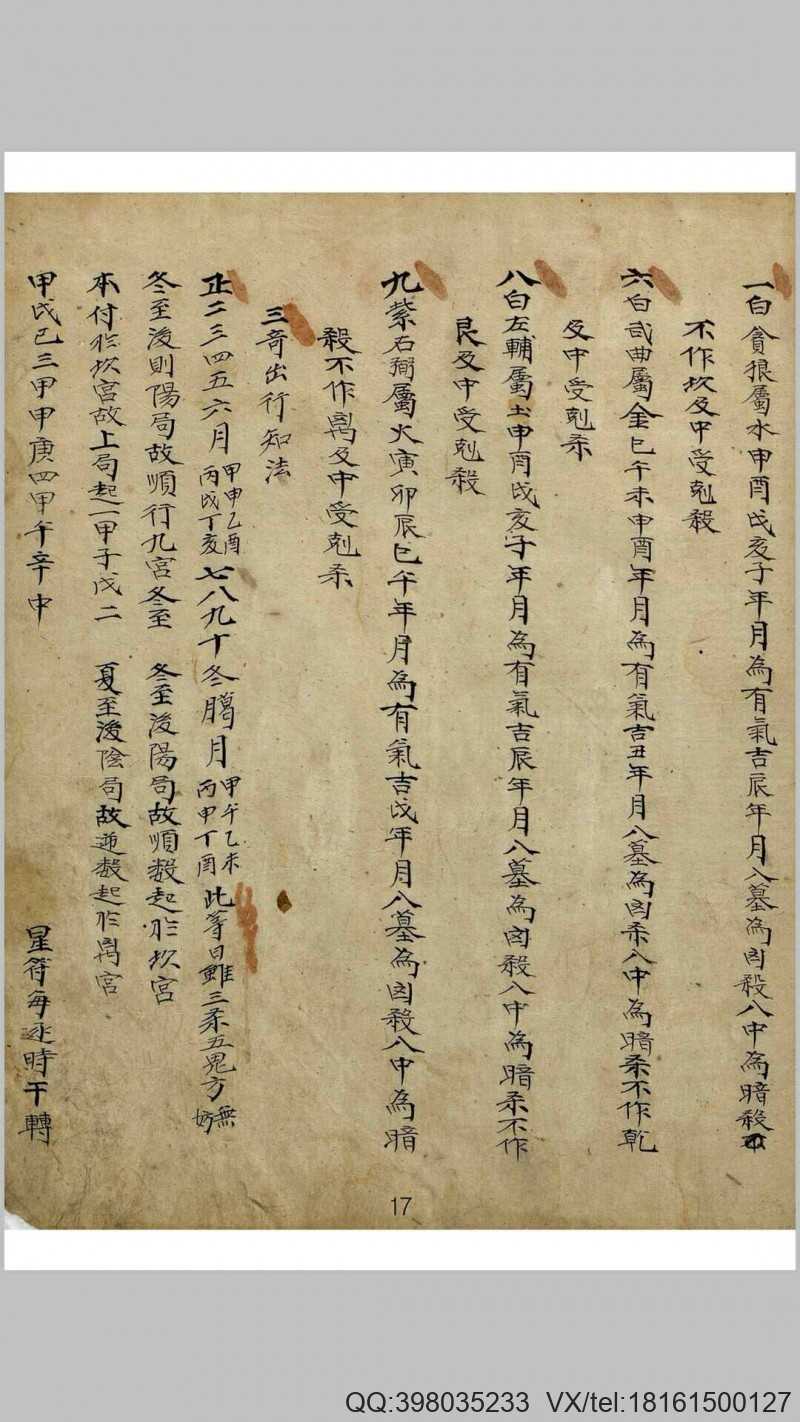 一白貪狼屬水申酉戌亥子年月為有氣吉辰年月入墓為凶殺入中為暗殺
不作坎及中受剋殺
六白武曲屬金巳午未申酉年月為有氣吉丑年月入墓為凶杀入中為暗杀不作乾
及中受剋杀
八白左輔屬土申酉戌亥子年月為有氣吉辰年月入墓為凶殺入中為暗杀不作
艮及中受剋殺
九紫右弼屬火寅卯辰巳午年月為有氣吉戌年月入墓為凶殺入中為暗
殺不作离及中受剋杀
三奇出行知法
正二三四五六月甲申乙酉丙戌丁亥七八九十冬腊月甲午乙未丙申丁酉此等日雖三杀五鬼方無妨
冬至後則陽局故順行九宮冬至 冬至後陽局故順数起於坎宮
本付於坎宮故上局起一甲子戊二 夏至後陰局故逆数起於离宮
甲戌己三甲申庚四甲午辛中 星符每逐時干轉
17
QQ:398035233 VX/tel:18161500127